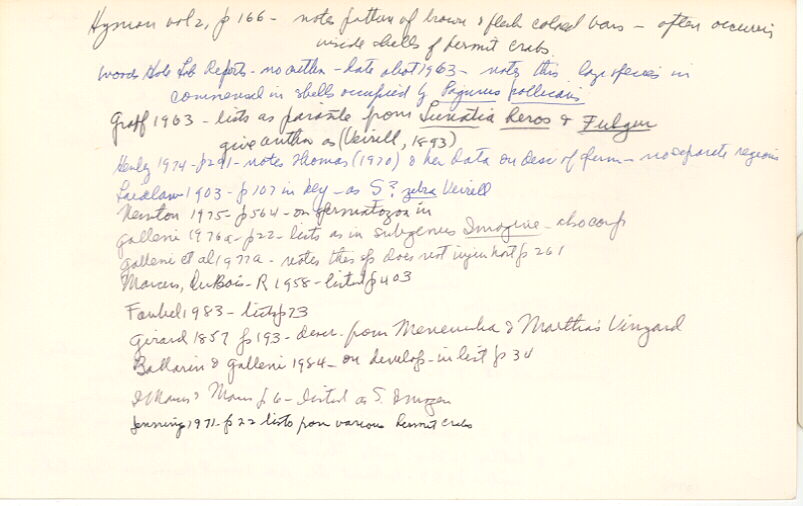 Hyman vol 2, p 166 - notes pattern of brown & flesh colored bars - often occurs
inside shells of hermit crabs.
Woods Hole Lab Reports - no author - date about 1963 - notes this large species in
commensal in shells occupied by Pagurus pollicaris
Graff 1963 - lists as parasite from Lunatia heros & Fulgur
give author as (Verrill, 1893)
Henley 1974 - p 291 - notes Thomas (1970) & her data on desc of sperm - no separate regions
Laidlaw 1903 - p 107 in key - as S? zebra Verrill
Newton 1975 - p 564 - on spermatozoa in
Galleni 1976a - p 22 - lists as in subgenus Imogine - also comp
Galleni et al 1977a - notes this sp does not injure host p 261
Marcus, DuBois-R 1958 - listed p 403
Faubel 1983 - lists p 73
Girard 1857 p 193 - descr. from Menemsha & Martha's Vinyard
Ballarin & Galleni 1984 - on develop - in list p 34
& Marcus p 6 - listed as S. Imogen
Jenning 1971 - p 22 lists from various hermit crabs